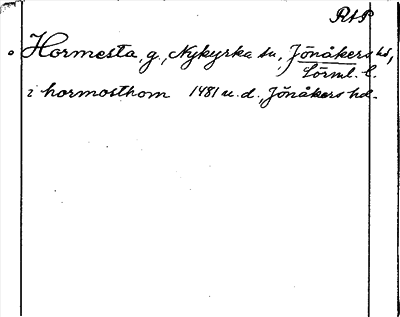 RAP
Hormesta, g., Nykyrka sn, Jönåkers hd,
Sörml. l.
i hormosthom 1481 u. d., Jönåkers hd.